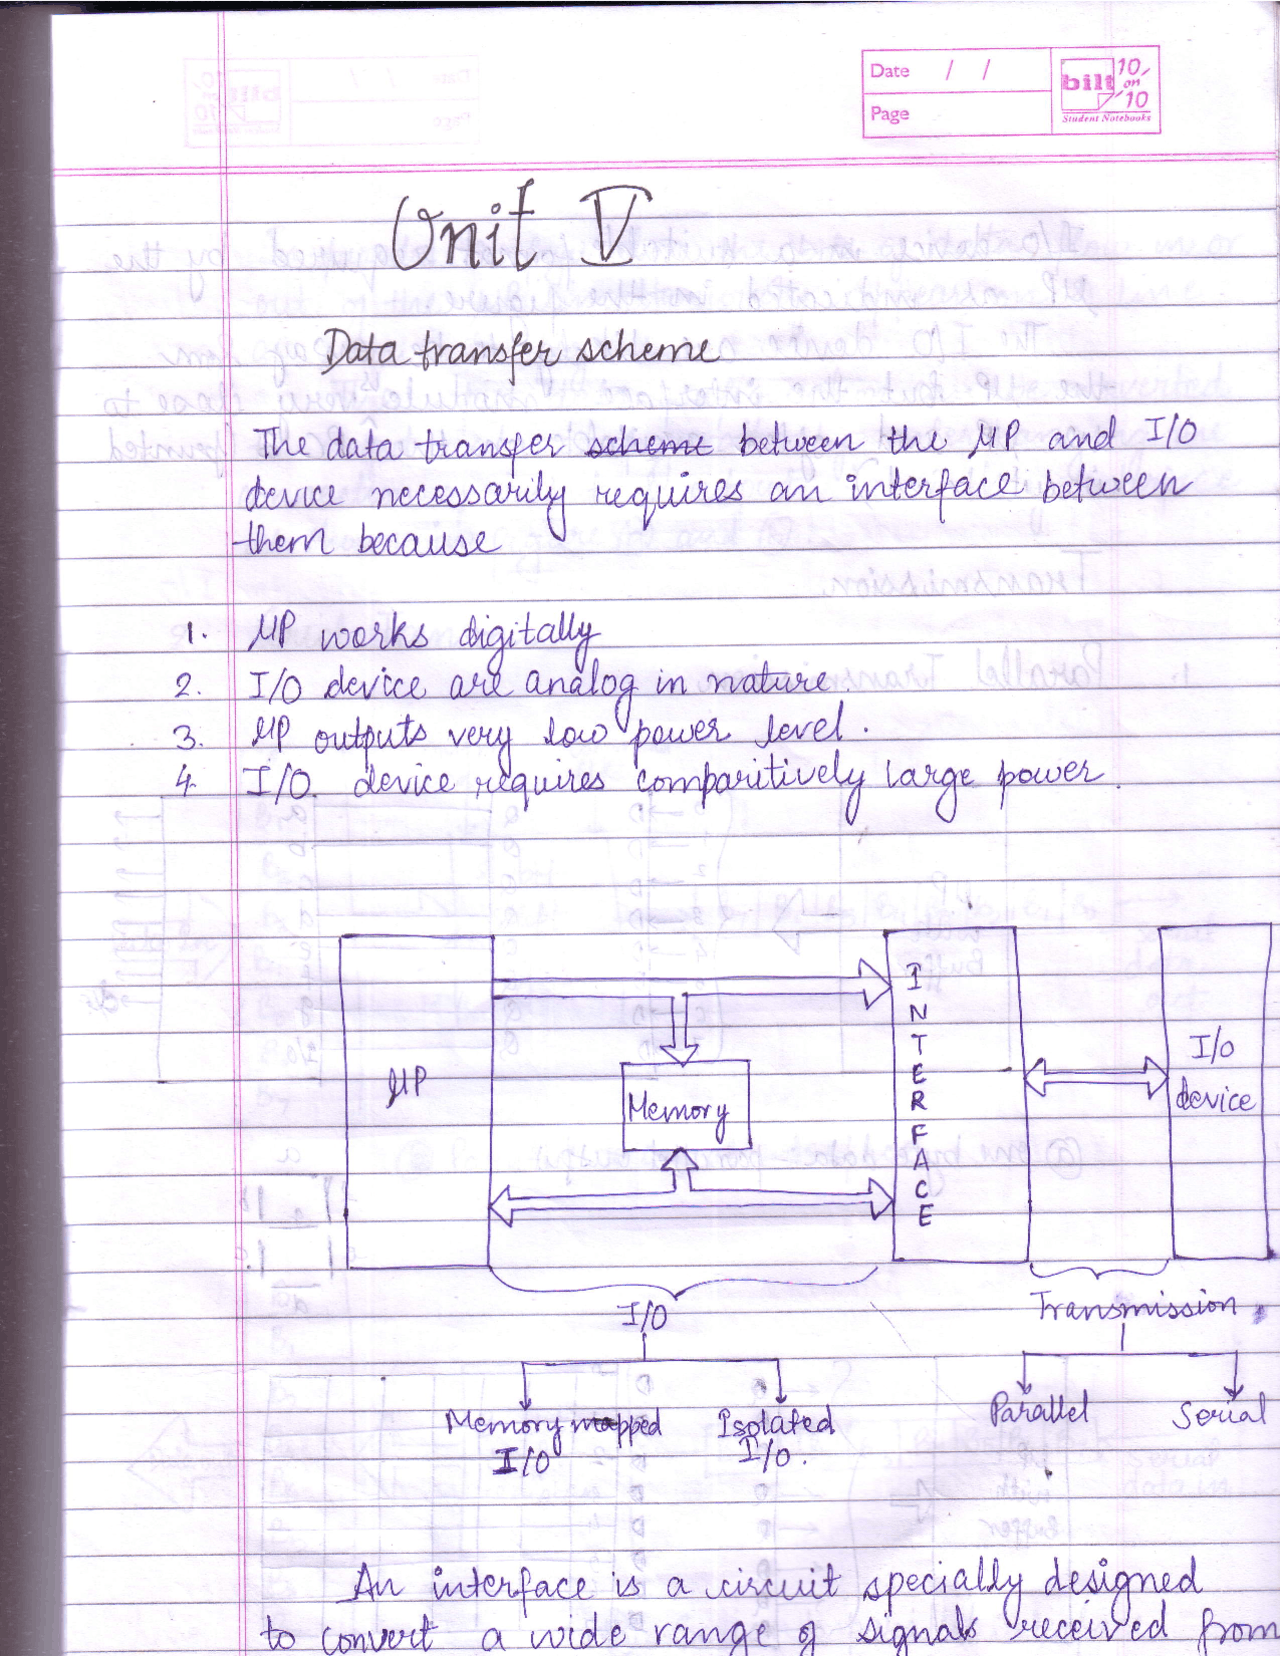 Date / /
Page
bilt 10 on 10
Student Notebooks
Unit V
Data transfer scheme
The data transfer scheme between the μP and I/O
device necessarily requires an interface between
them because
1. μP works digitally
2. I/O device are analog in nature.
3. μP outputs very low power level.
4. I/O. device requires comparitively large power.
μP
Memory
INTERFACE
I/O
device
I/O
Transmission
Memory mapped
I/O
Isolated
I/O.
Parallel
Serial
An interface is a circuit specially designed
to convert a wide range of signals received from